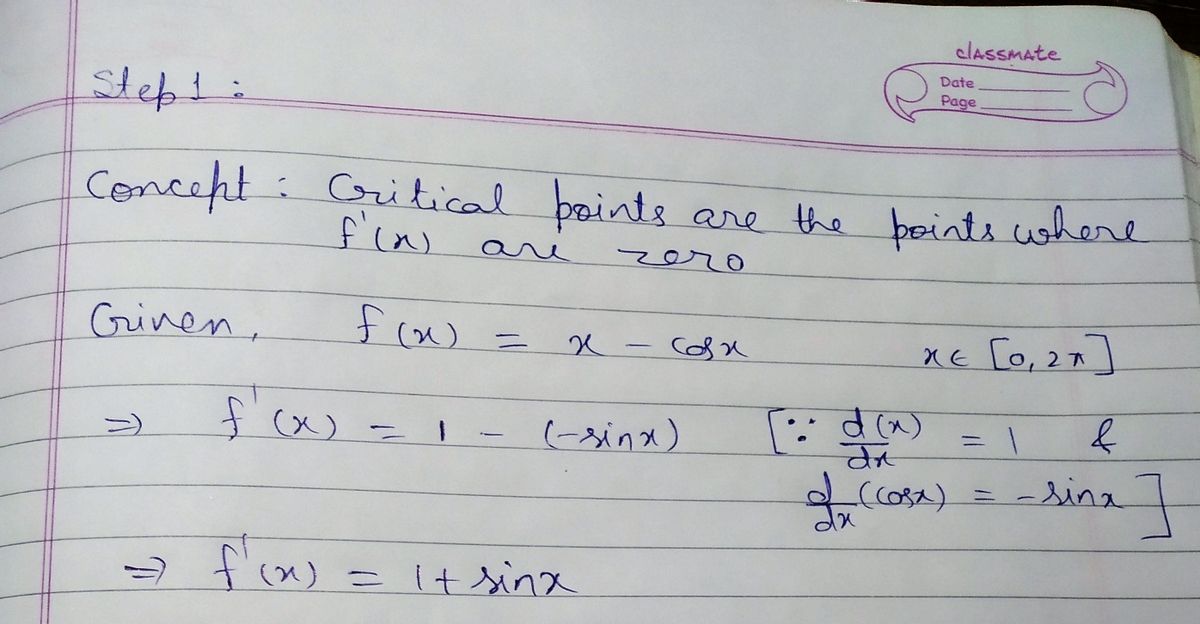 classmate
Date
Page
Step 1 :
Concept : Critical points are the points where
f'(x) are zero
Given, f(x) = x - cosx x ∈ [0, 2π]
⇒ f'(x) = 1 - (-sinx) [∵ d(x)/dx = 1 &
d/dx (cosx) = -sinx ]
⇒ f'(x) = 1 + sinx